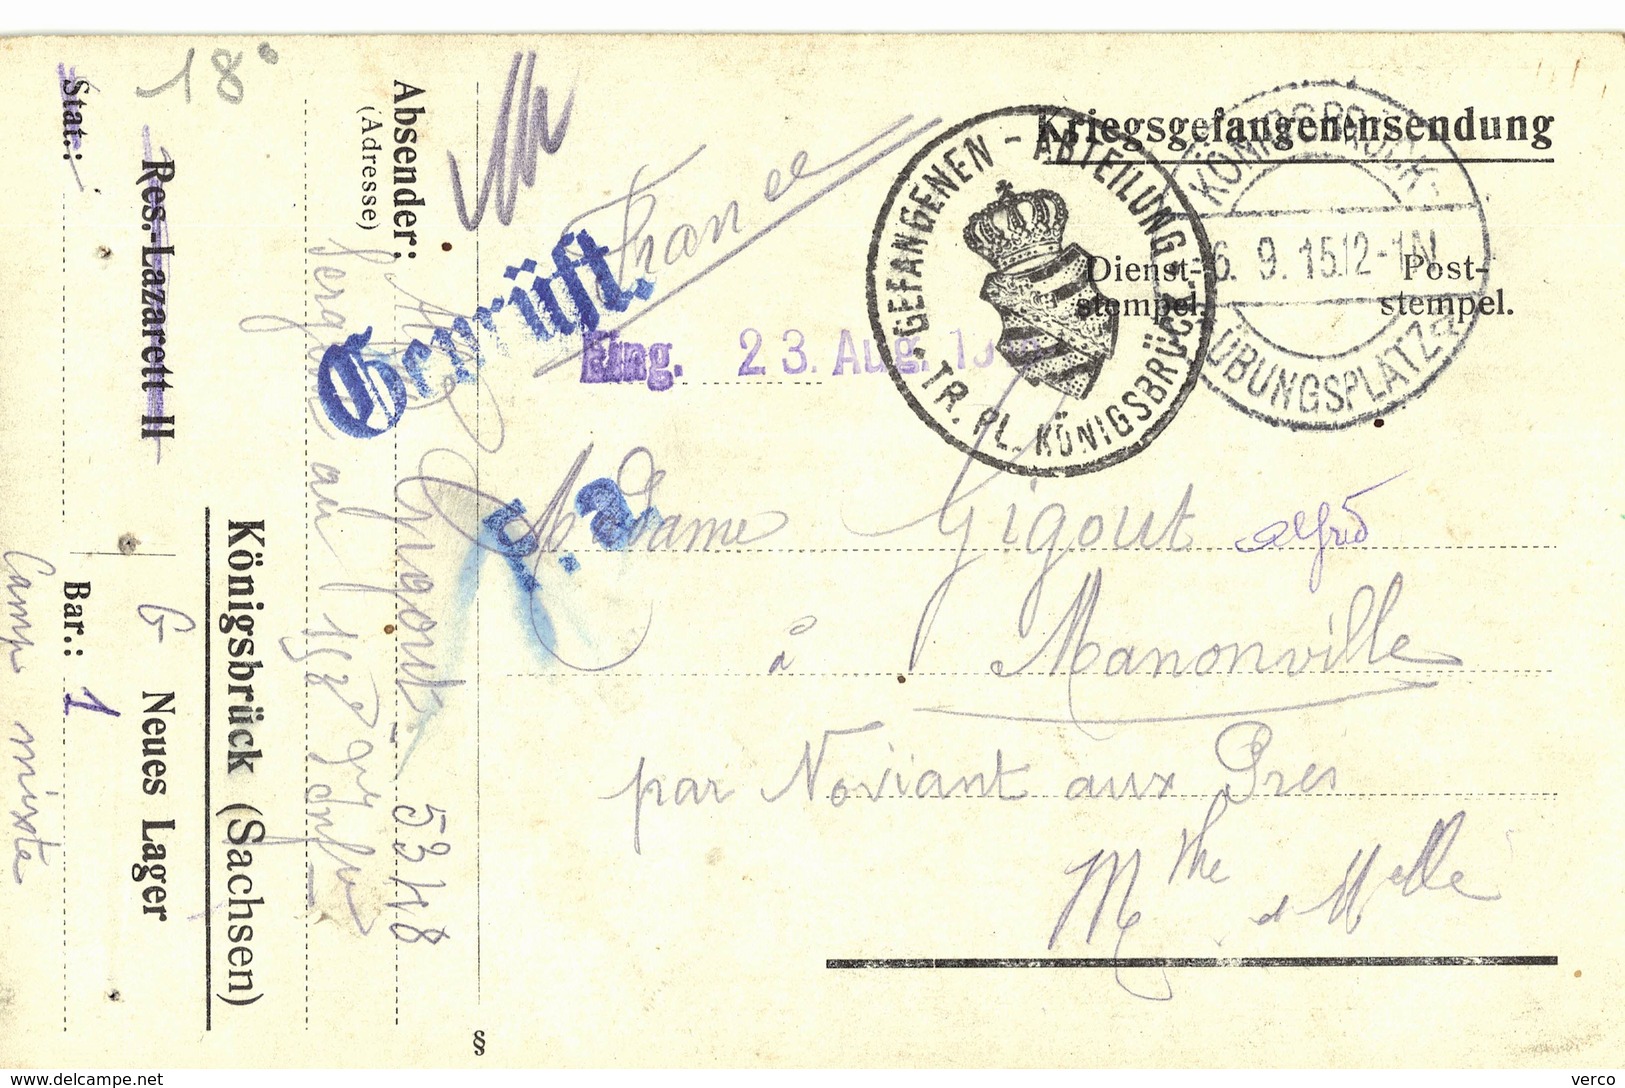 18°
Kriegsgefangenensendung
GEFANGENEN - ABTEILUNG
TR. PL. KÖNIGSBRÜCK
KÖNIGSBRÜCK
6. 9. 15.12-1N.
ÜBUNGSPLATZ
Dienst-
stempel.
Post-
stempel.
France
Geprüft.
Eing. 23. Aug.
F. a
Madame Gigout alfred
à Manonville
par Noviant aux Prés
M the et Melle
Absender:
(Adresse)
Gigout 5348
au 168e
Königsbrück (Sachsen)
Res.-Lazarett II
G Neues Lager
Stat.:
Bar.: 1
Camp mixte
§
www.delcampe.net
verco